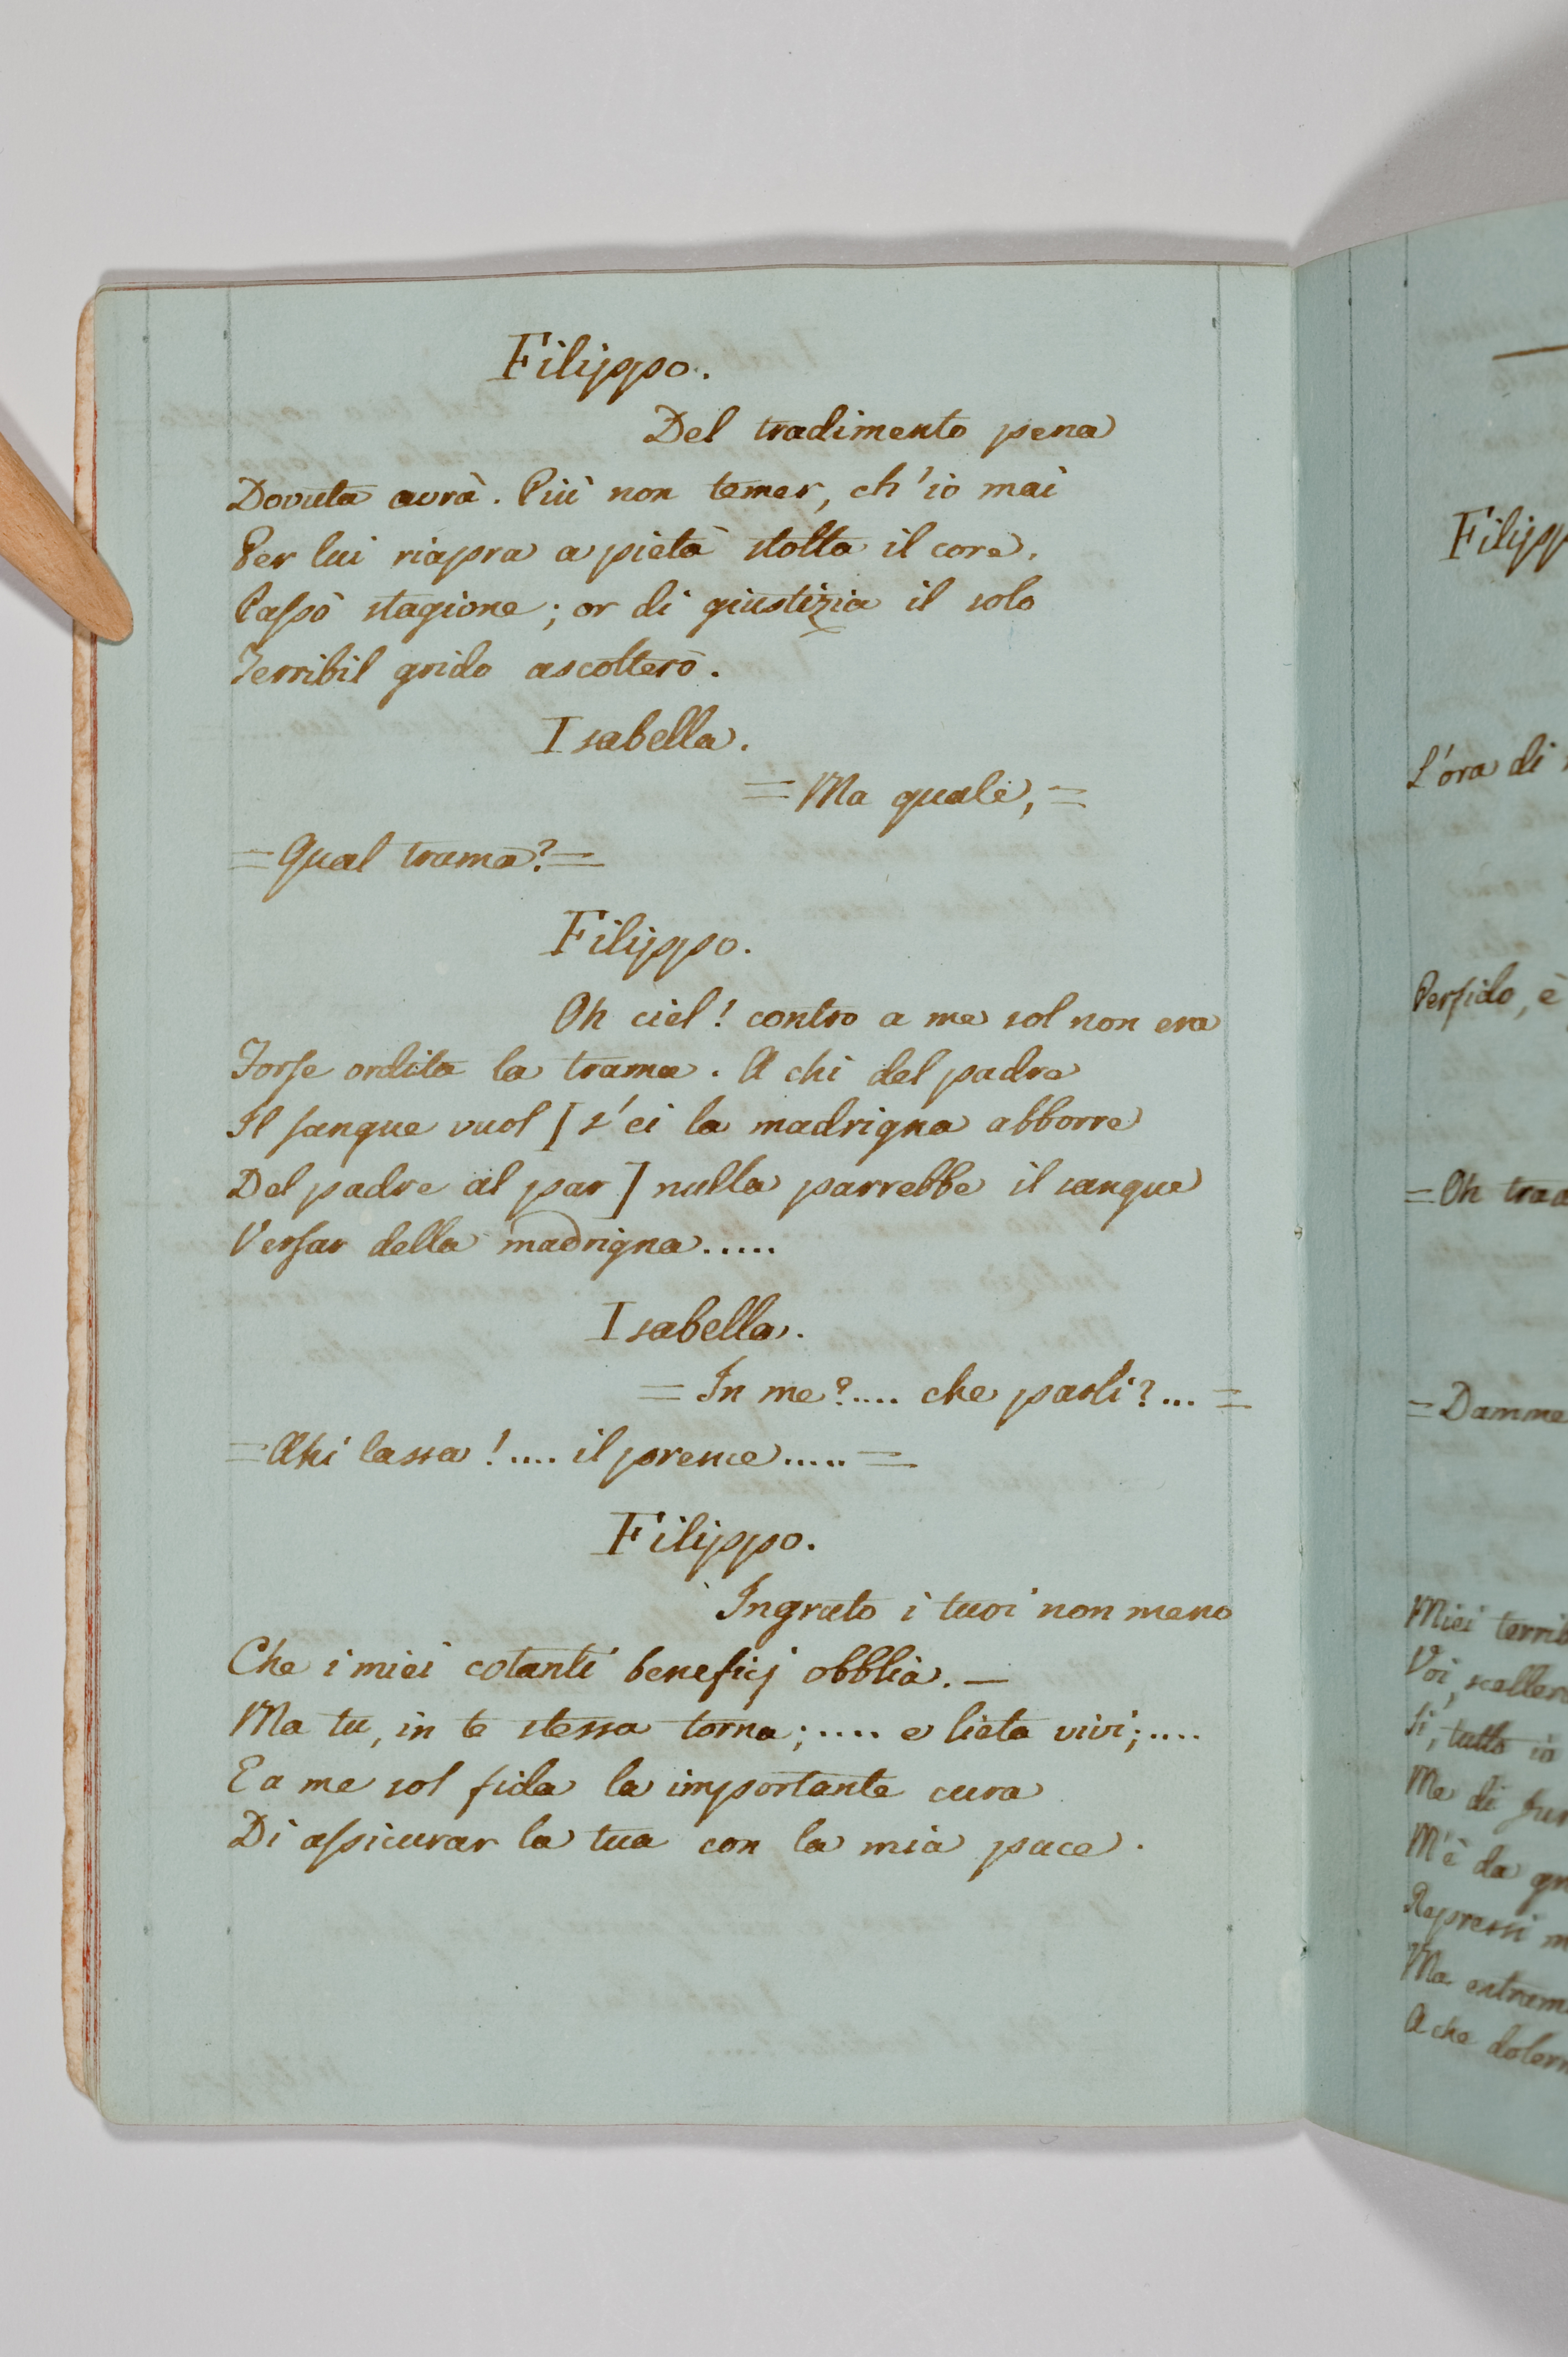 Filippo.
Del tradimento pena
Dovuta avrà. Più non temer, ch'io mai
Per lui riapra a pietà stolta il core.
Paſsò stagione; or di giustizia il solo
Terribil grido ascolterò.
Isabella.
= Ma quale, =
= Qual trama? =
Filippo.
Oh ciel! contro a me sol non era
Forſe ordita la trama. A chi del padre
Il ſangue vuol [s'ei la madrigna abborre
Del padre al par] nulla parrebbe il sangue
Verſar della madrigna.....
Isabella.
= In me?.... che parli?... =
= Ahi lassa!.... il prence..... =
Filippo.
Ingrato i tuoi non meno
Che i miei cotanti beneficj obblia. —
Ma tu, in te stessa torna;.... e lieta vivi;....
E a me sol fida la importante cura
Di aſsicurar la tua con la mia pace.
Filipp
L'ora di
Perfido, è
= Oh trad
= Damme
Miei terrib
Voi, sceller
Sì, tutto io
Ma di fur
M'è da gr
Repressi m
Ma estrem
A che dolerm